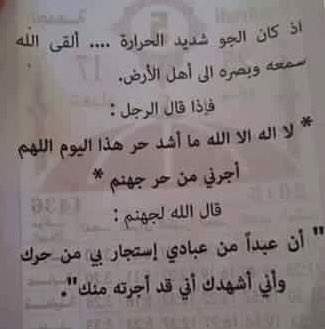 اذ كان الجو شديد الحرارة .... ألقى الله
سمعه وبصره الى أهل الأرض.
فإذا قال الرجل :
* لا اله الا الله ما أشد حر هذا اليوم اللهم
أجرني من حر جهنم *
قال الله لجهنم :
" أن عبداً من عبادي إستجار بي من حرك
وأني أشهدك أني قد أجرته منك".